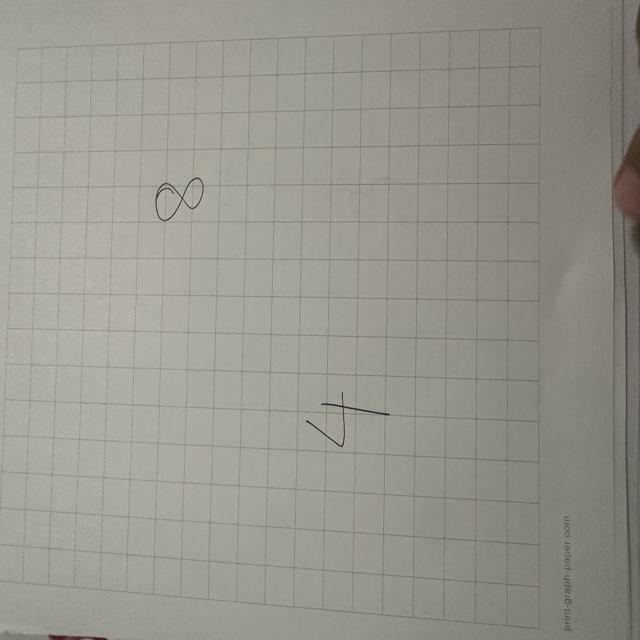 8
4
print-graph-paper.com